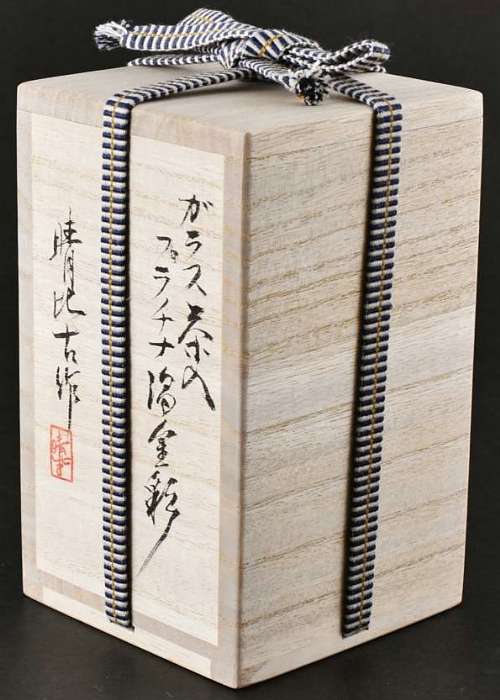 ガラス茶入
プラチナ陽金彩
晴比古作